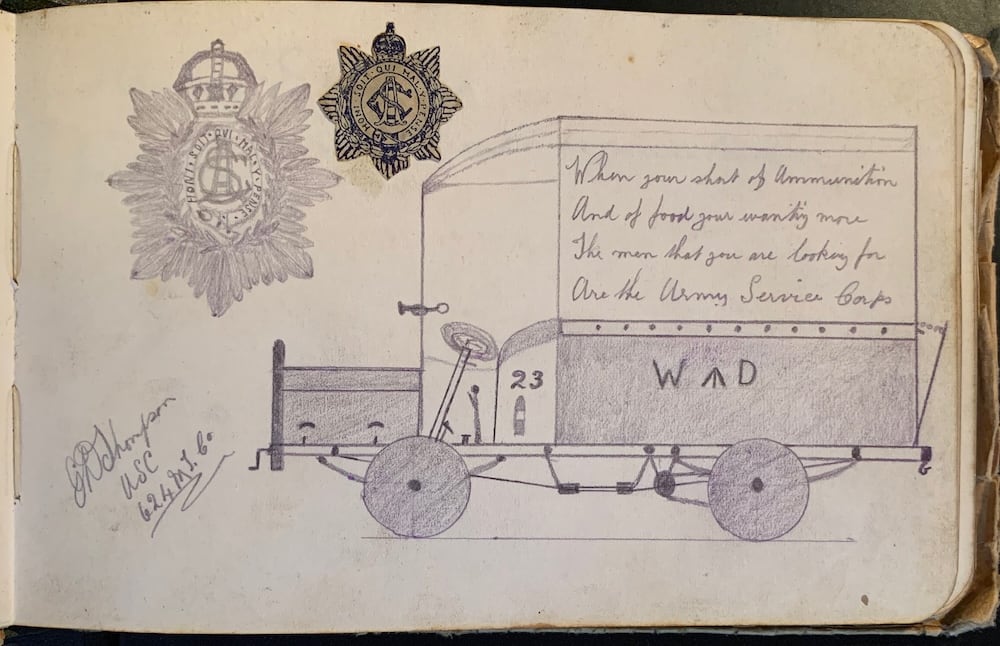 HONI · SOIT · QUI · MAL · Y · PENSE
ASC
HONI · SOIT · QUI · MAL · Y · PENSE
ASC
When your short of Ammunition
And of food your wanting more
The men that you are looking for
Are the Army Service Corps
23
W ↑ D
GR Thompson
ASC
624 M.T. Co